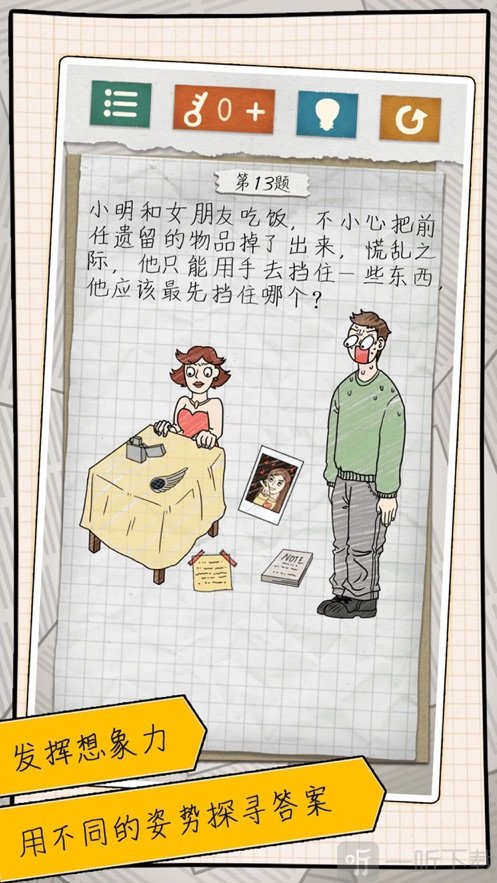 0 +
第13题
小明和女朋友吃饭，不小心把前
任遗留的物品掉了出来，慌乱之
际，他只能用手去挡住一些东西，
他应该最先挡住哪个？
NOTE
发挥想象力
用不同的姿势探寻答案
一听下载